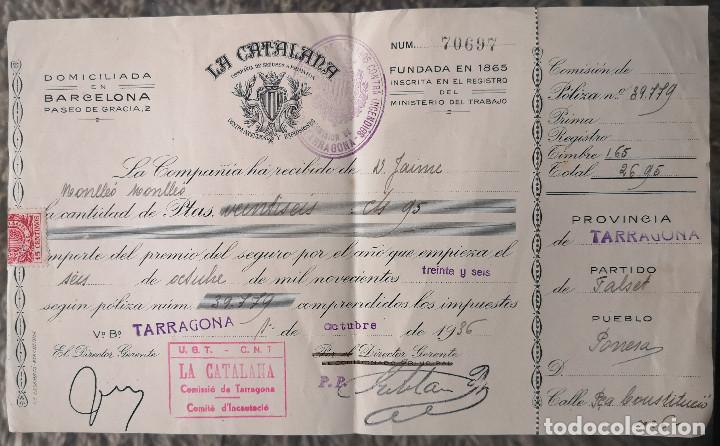 DOMICILIADA
EN
BARCELONA
PASEO DE GRACIA, 2
LA CATALANA
COMPAÑIA DE SEGUROS A PRIMA FIJA
CONTRA INCENDIOS
TARRAGONA
NUM. 70697
FUNDADA EN 1865
INSCRITA EN EL REGISTRO
DEL
MINISTERIO DEL TRABAJO
La Compañía ha recibido de D. Jaime
Monlleó Monlleó
la cantidad de Ptas. veintiseis Cts 95
importe del premio del seguro por el año que empieza el
seis de octubre de mil novecientos treinta y seis
según póliza núm. 39.779 comprendidos los impuestos
Vº Bº TARRAGONA 1º de Octubre de 1936
El Director Gerente
Por el Director Gerente
P. P.
U.G.T. - C.N.T
LA CATALANA
Comissió de Tarragona
Comitè d'Incautació
15 CENTIMOS
Comisión de
Póliza nº 39.779
Prima
Registro
Timbre 1,65
Total 26,95
PROVINCIA
de TARRAGONA
PARTIDO
de Falset
PUEBLO
Porrera
D.
Calle Pça Constitució
todocoleccion.net